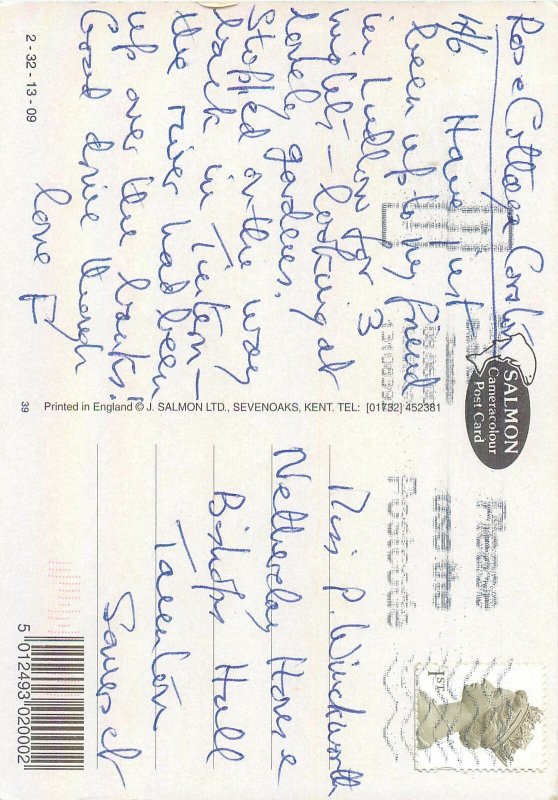 Rose Cottage
4/6 Have just
been up to my friend
in Ludlow for 3
nights - looking at
lovely gardens.
Stopped on the way
back in Tintern -
the river had been
up over the banks!
Good drive though
love F
2 - 32 - 13 - 09
39 Printed in England © J. SALMON LTD., SEVENOAKS, KENT. TEL: [01732] 452381
SALMON
Cameracolour
Post Card
1ST
Miss P. Winckworth
Netherclay House
Bishops Hull
Taunton
Somerset
5 012493 020002